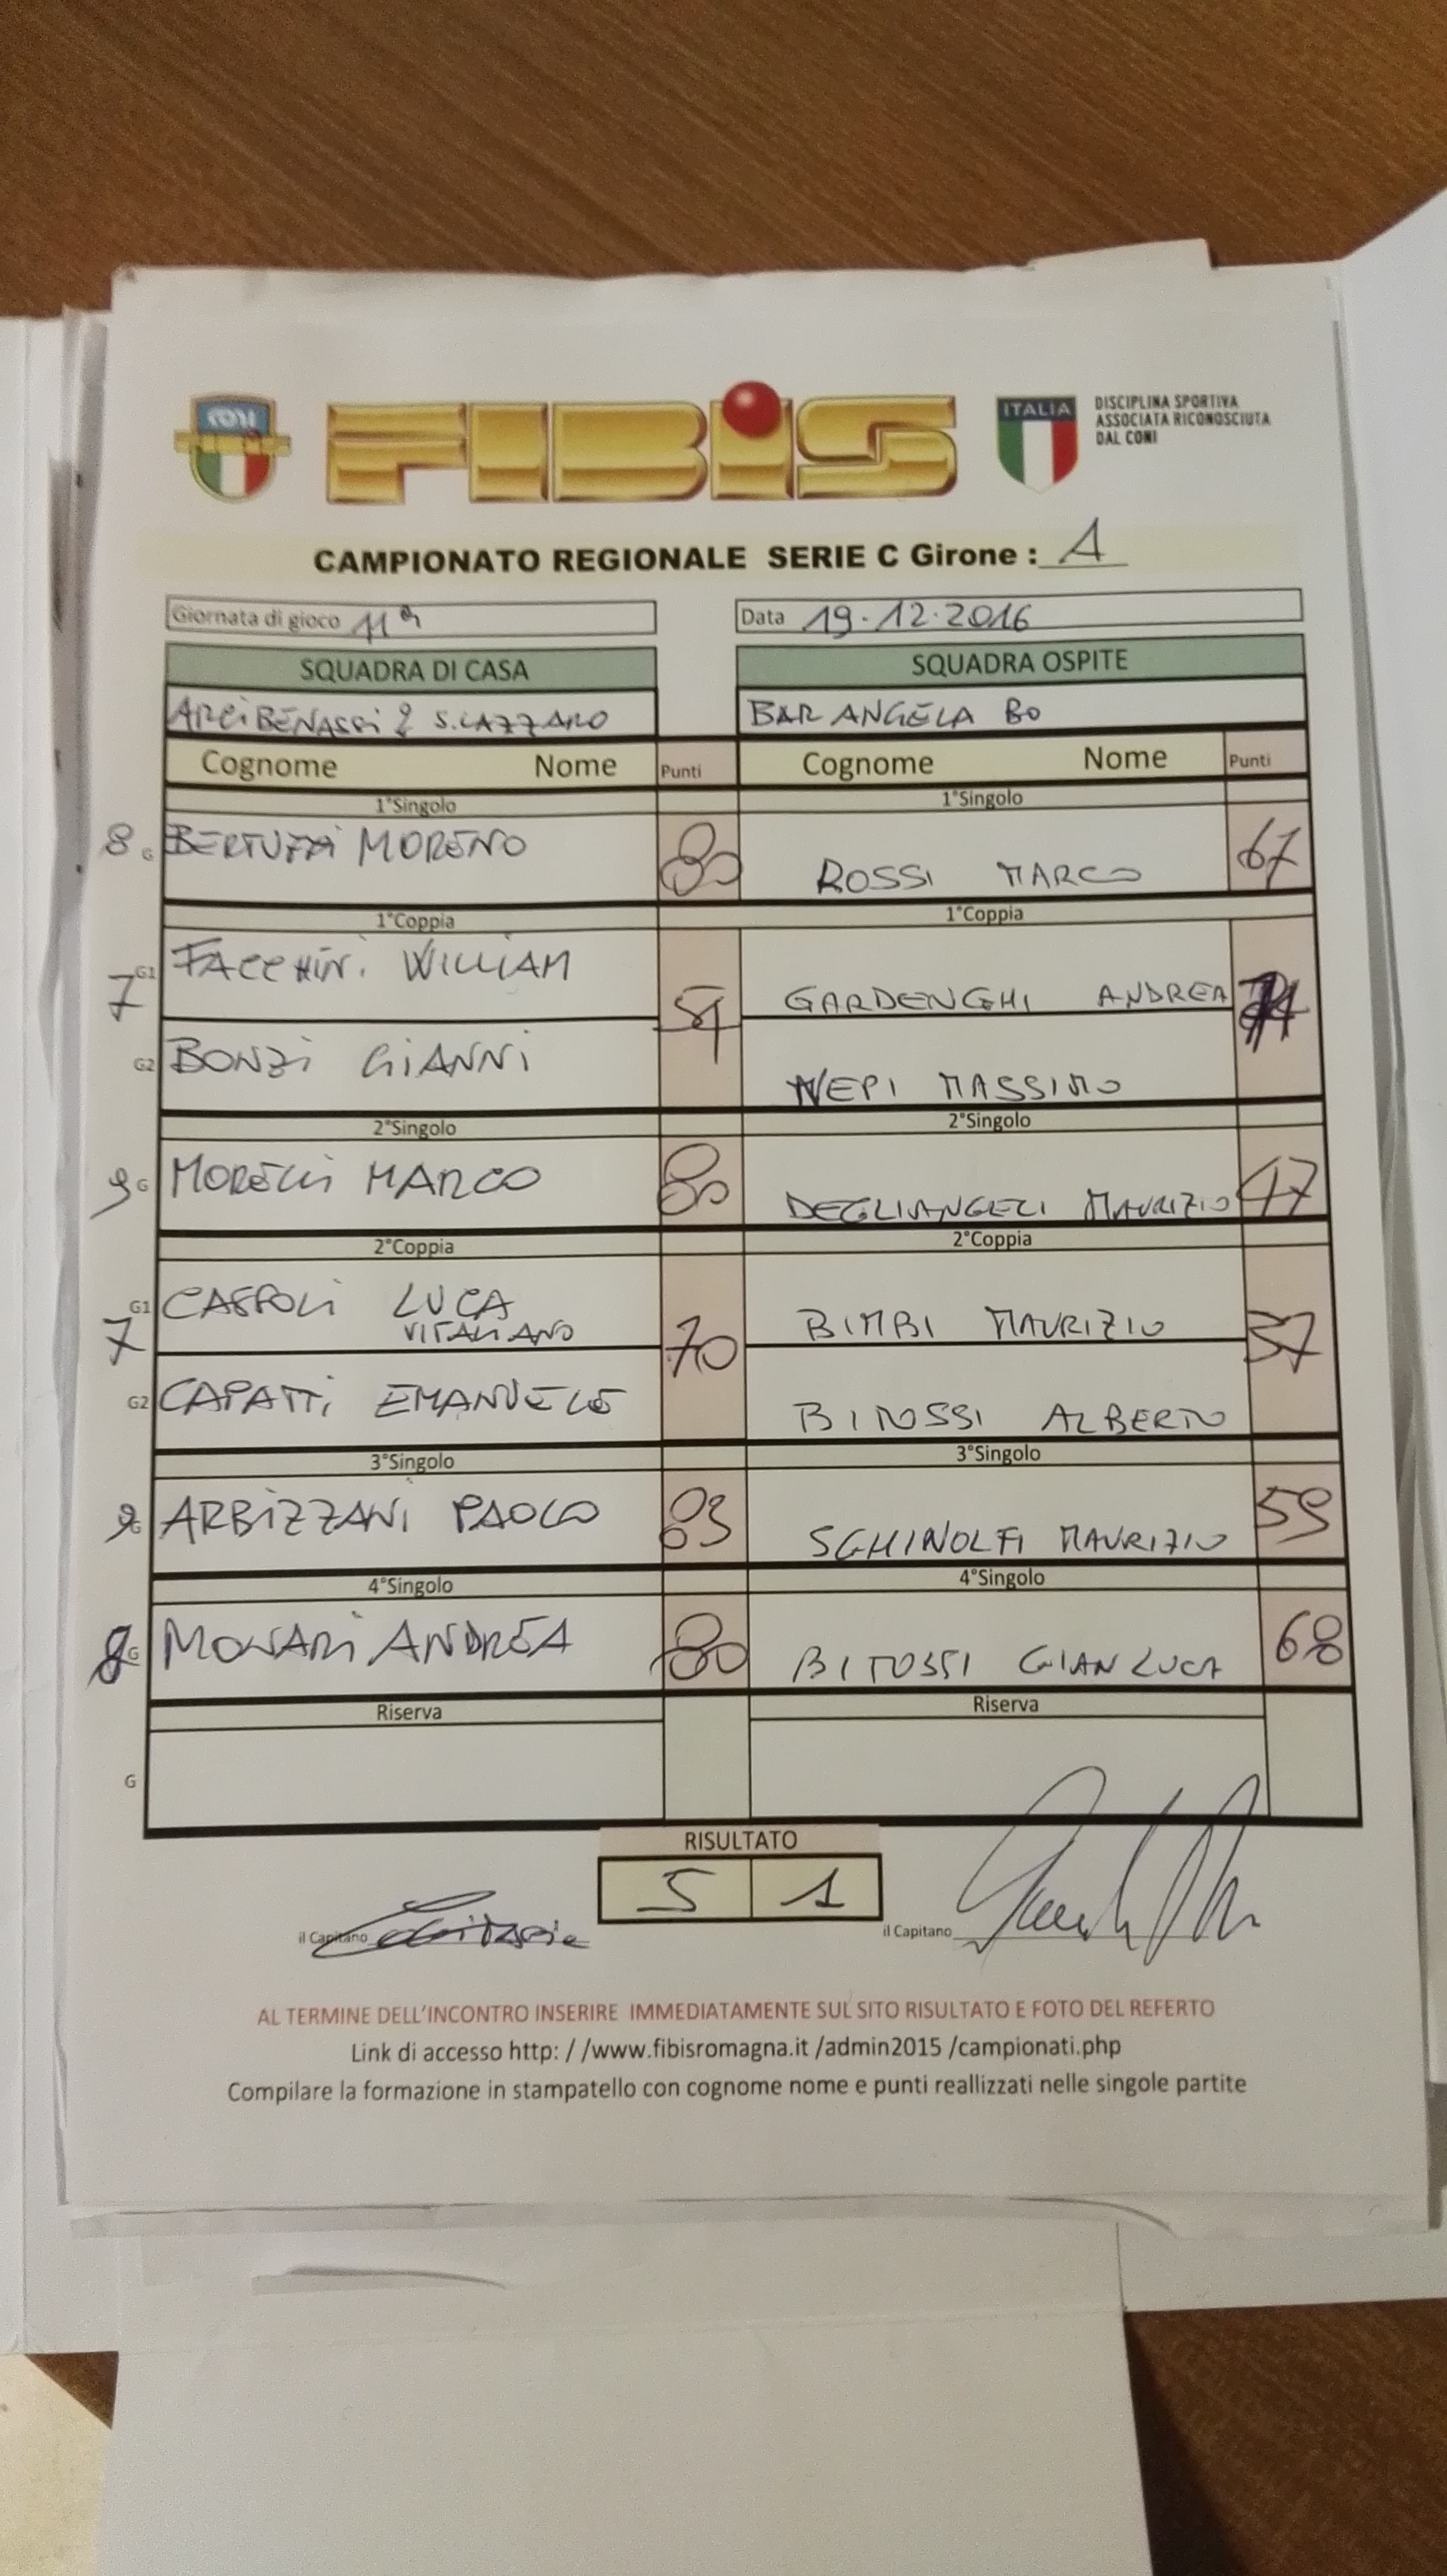 CONI
FIBiS
ITALIA
DISCIPLINA SPORTIVA
ASSOCIATA RICONOSCIUTA
DAL CONI
CAMPIONATO REGIONALE SERIE C Girone : A
Giornata di gioco 11ª Data 19.12.2016
SQUADRA DI CASA SQUADRA OSPITE
ARCI BENASSI 2 S.LAZZARO BAR ANGELA BO
Cognome Nome Punti Cognome Nome Punti
1°Singolo 1°Singolo
8 G BERTUZZI MORENO 80 ROSSI MARCO 67
1°Coppia 1°Coppia
7 G1 FACCHINI WILLIAM GARDENGHI ANDREA
G2 BONZI GIANNI NEPI MASSIMO
2°Singolo 2°Singolo
9 G MORELLI MARCO 80 DEGLIANGELI MAURIZIO 47
2°Coppia 2°Coppia
7 G1 CASPOLI LUCA VITALIANO 70 BIMBI MAURIZIO 37
G2 CAPATTI EMANUELE BITOSSI ALBERTO
3°Singolo 3°Singolo
G ARBIZZANI PAOLO 83 SGHINOLFI MAURIZIO 59
4°Singolo 4°Singolo
8 G MONARI ANDREA 80 BITOSSI GIANLUCA 68
Riserva Riserva
G
RISULTATO
5 1
il Capitano il Capitano
AL TERMINE DELL'INCONTRO INSERIRE IMMEDIATAMENTE SUL SITO RISULTATO E FOTO DEL REFERTO
Link di accesso http: / /www.fibisromagna.it /admin2015 /campionati.php
Compilare la formazione in stampatello con cognome nome e punti reallizzati nelle singole partite